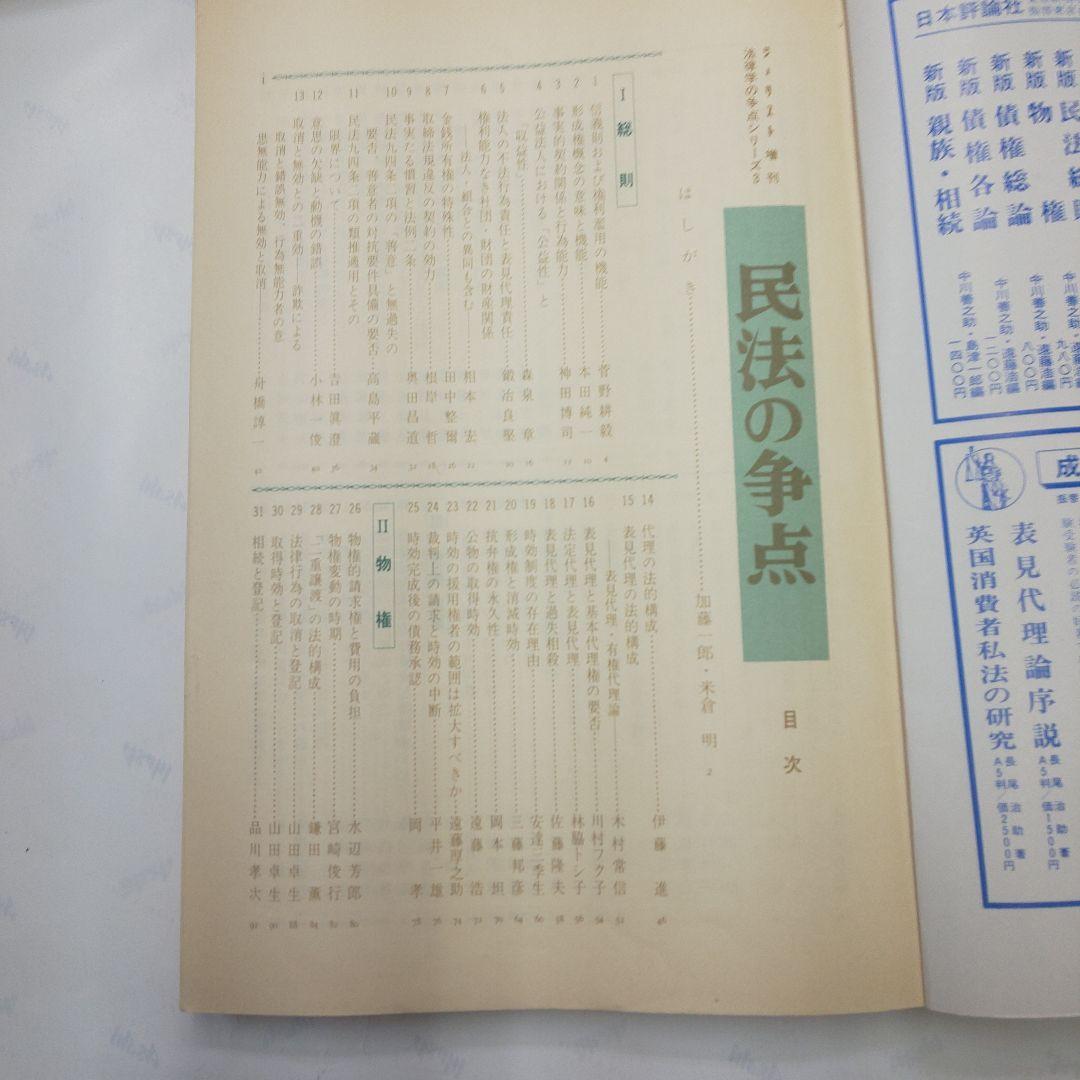 ジュリスト増刊
法律学の争点シリーズ3
民法の争点
目次
はしがき……加藤一郎・米倉 明 2
I 総則
1 信義則および権利濫用の機能……菅野耕毅 4
2 形成権概念の意味と機能……本田純一 10
3 事実的契約関係と行為能力……神田博司
4 公益法人における「公益性」と
「収益性」……森泉 章 16
5 法人の不法行為責任と表見代理責任……鍛冶良堅 20
6 権利能力なき社団・財団の財産関係
――法人・組合との異同も含む――……相本 宏 22
7 金銭所有権の特殊性……田中整爾 26
8 取締法規違反の契約の効力……根岸 哲 28
9 事実たる慣習と法例二条……奥田昌道 32
10 民法九四条二項の「善意」と無過失の
要否、善意者の対抗要件具備の要否……高島平蔵 34
11 民法九四条二項の類推適用とその
限界について……吉田眞澄 36
12 意思の欠缺と動機の錯誤……小林一俊 40
13 取消と無効との二重効――詐欺による
取消と錯誤無効、行為無能力者の意
思無能力による無効と取消――……舟橋諄一 42
i
14 代理の法的構成……伊藤 進 46
15 表見代理の法的構成
――表見代理・有権代理論……木村常信 52
16 表見代理と基本代理権の要否……川村フク子 54
17 法定代理と表見代理……林脇トシ子 56
18 表見代理と過失相殺……佐藤隆夫 58
19 時効制度の存在理由……安達三季生 60
20 形成権と消滅時効……三藤邦彦 64
21 抗弁権の永久性……岡本 坦 70
22 公物の取得時効……遠藤 浩 72
23 時効の援用権者の範囲は拡大すべきか……遠藤厚之助 74
24 裁判上の請求と時効の中断……平井一雄 76
25 時効完成後の債務承認……岡 孝 78
II 物権
26 物権的請求権と費用の負担……水辺芳郎 80
27 物権変動の時期……宮崎俊行 82
28 「二重譲渡」の法的構成……鎌田 薫 84
29 法律行為の取消と登記……山田卓生 88
30 取得時効と登記……山田卓生 90
31 相続と登記……品川孝次 92
日本評論社
新版 物権
新版 債権総論
新版 債権各論
新版 親族・相続
中川善之助・遠藤浩編
九八〇円
中川善之助・遠藤浩編
八〇〇円
中川善之助・遠藤浩編
一二〇〇円
中川善之助・島津一郎編
一四〇〇円
成
表見代理論序説
長尾治助著
A5判/価1500円
英国消費者私法の研究
長尾治助著
A5判/価2500円